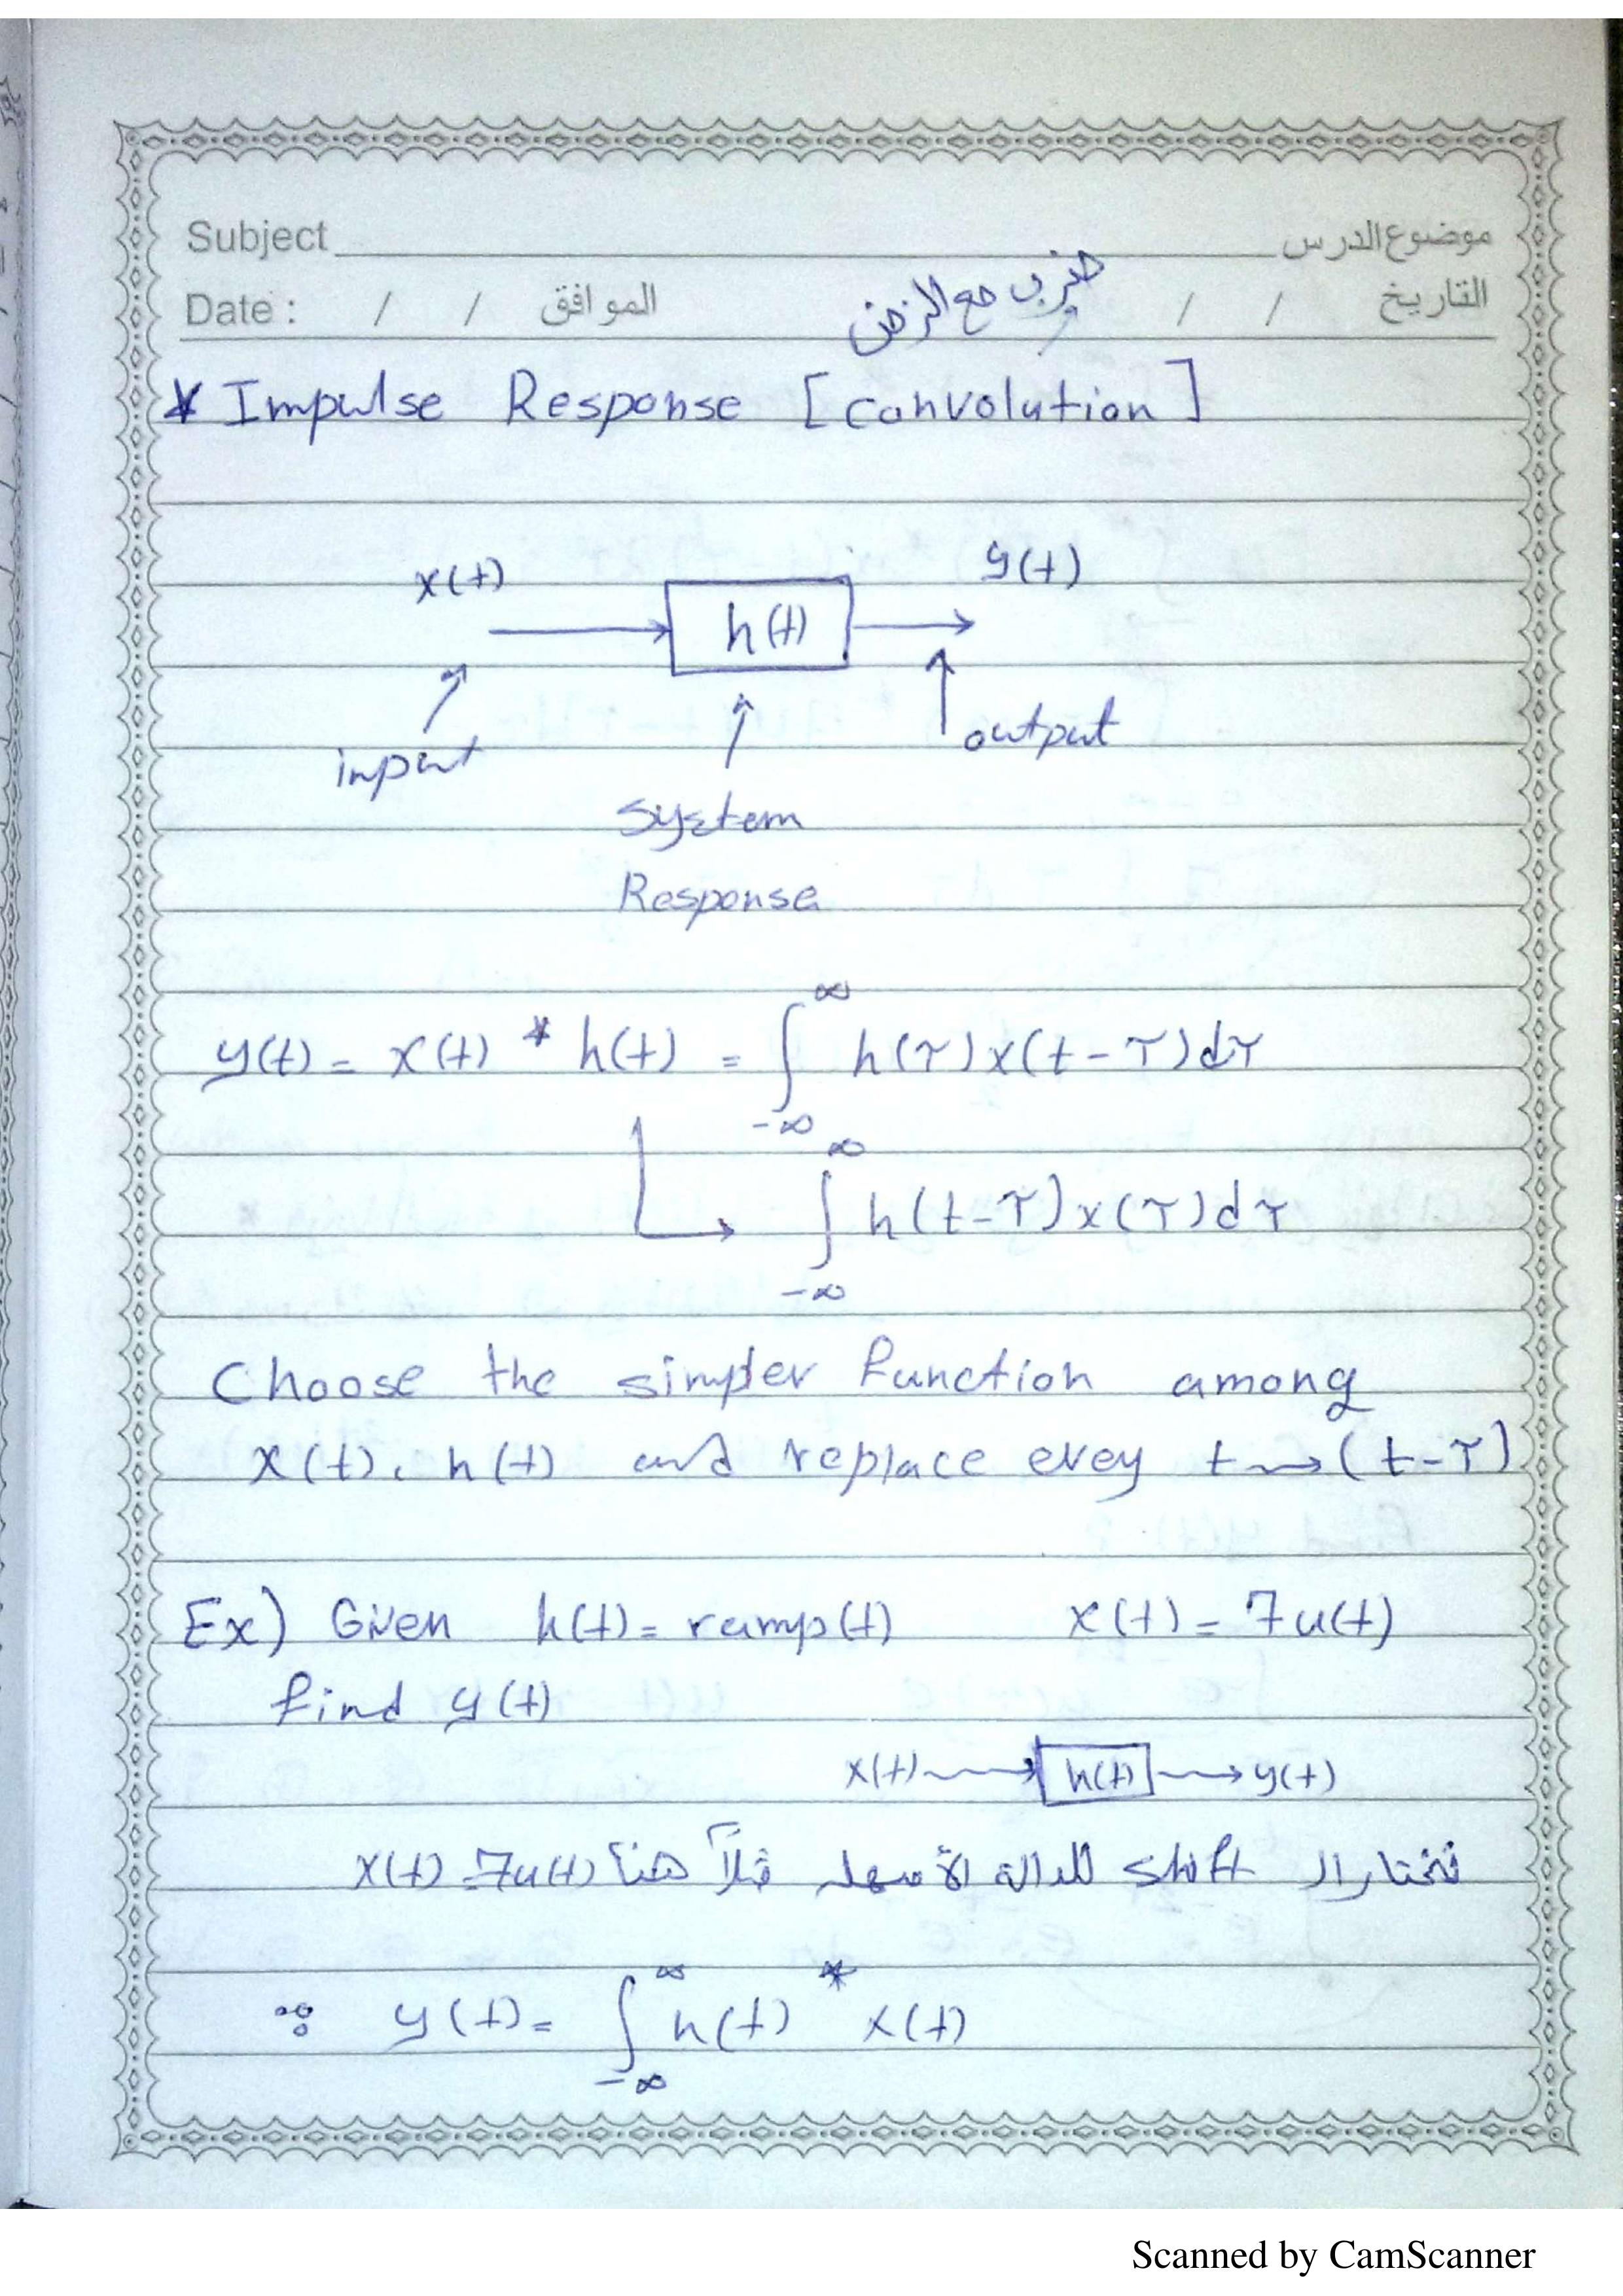 Subject موضوع الدرس
ضرب مع الزمن
Date : / / الموافق / / التاريخ
* Impulse Response [convolution]
x(t) h(t) y(t)
input output
System
Response
y(t) = x(t) * h(t) = ∫_{-∞}^{∞} h(τ) x(t-τ) dτ
∫_{-∞}^{∞} h(t-τ) x(τ) dτ
Choose the simpler function among
x(t), h(t) and replace evey t → (t-τ)
Ex) Given h(t) = ramp(t) x(t) = 7u(t)
find y(t)
x(t) → h(t) → y(t)
نختار ال shift للدالة الأسهل فمثلاً هنا x(t) = 7u(t)
∵ y(t) = ∫_{-∞}^{∞} h(t) * x(t)
Scanned by CamScanner